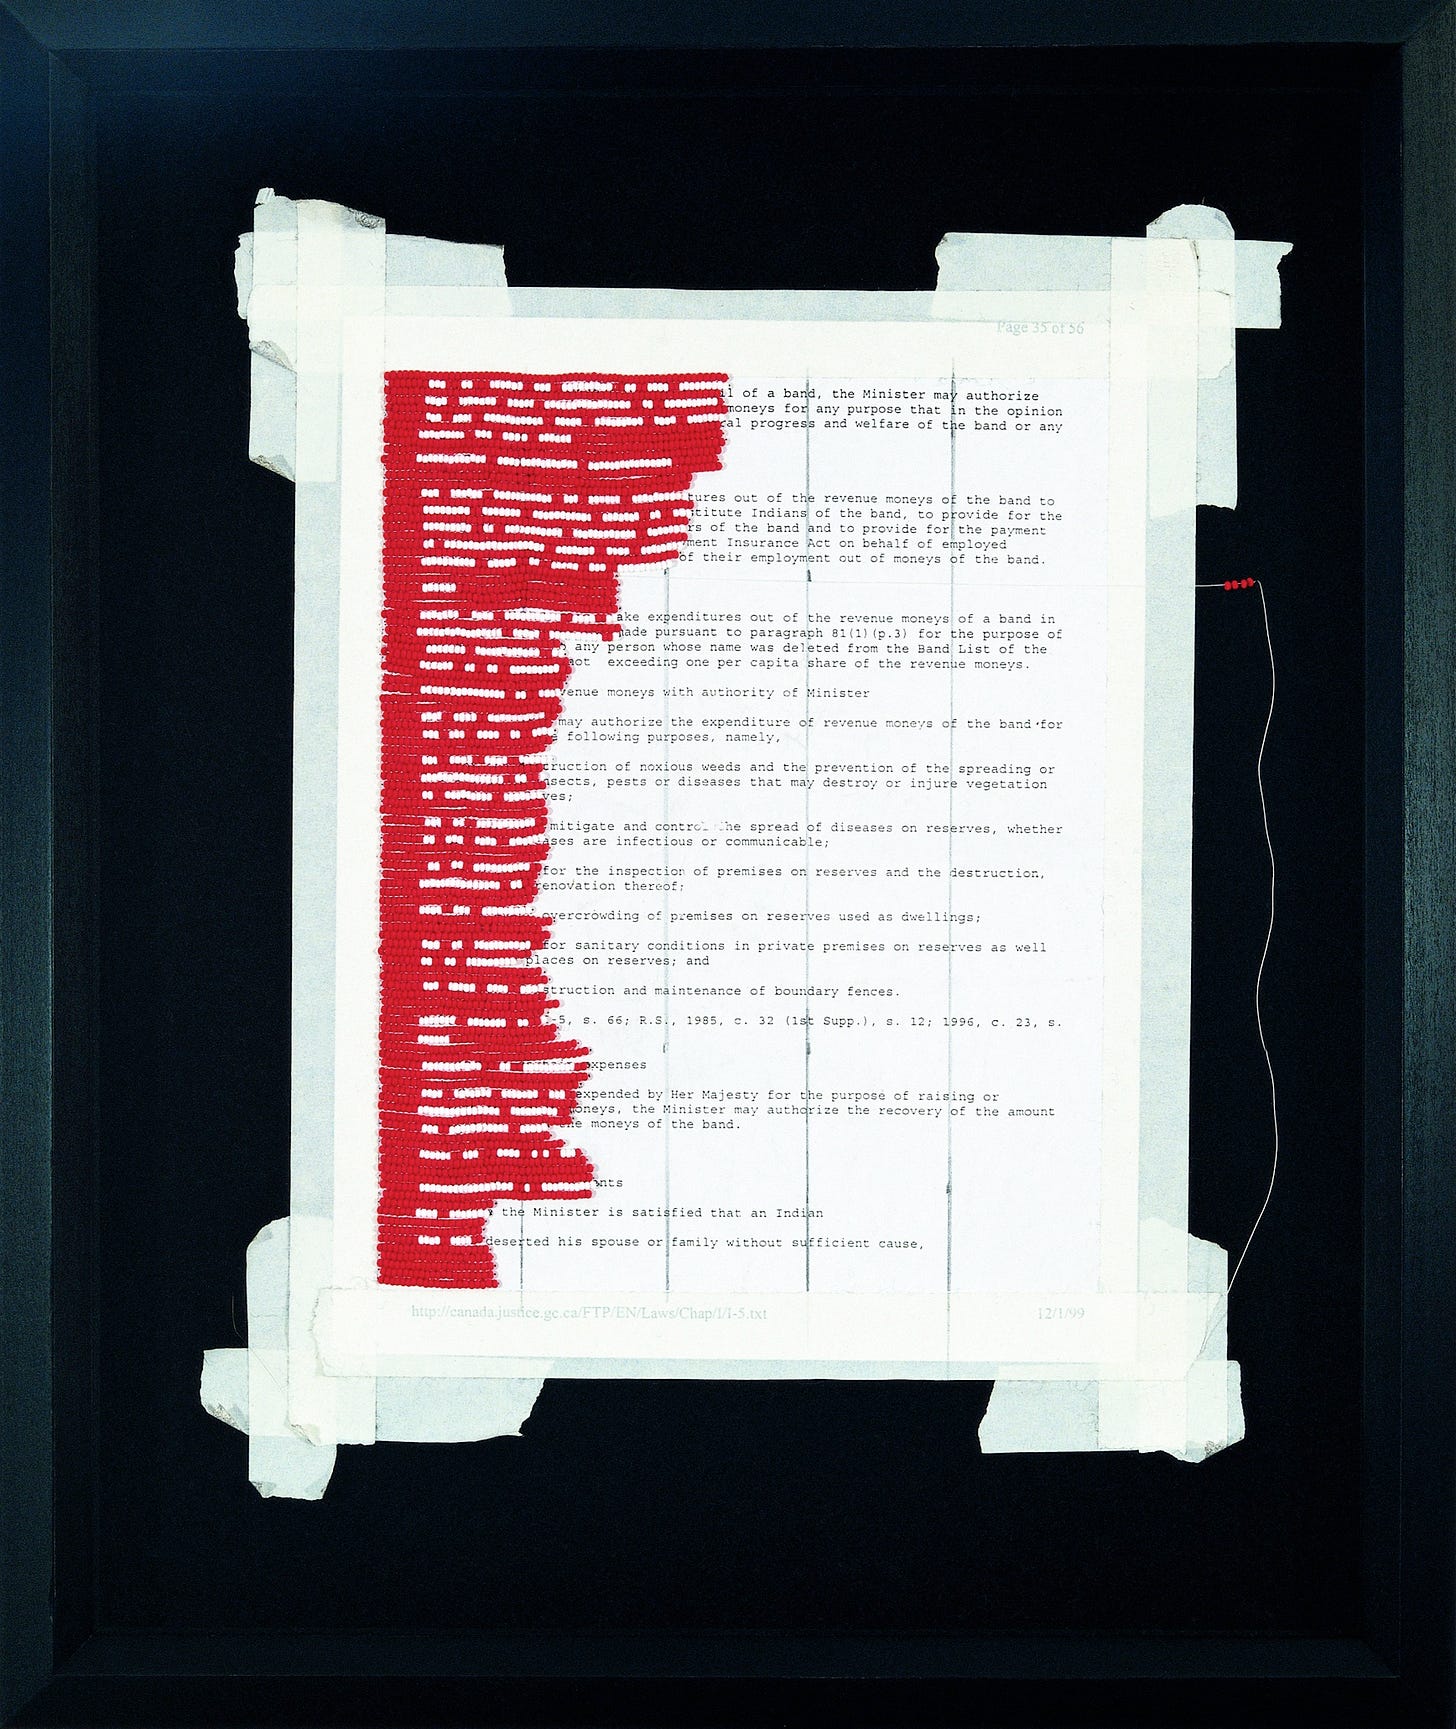 Page 35 of 56
of a band, the Minister may authorize
moneys for any purpose that in the opinion
progress and welfare of the band or any
out of the revenue moneys of the band to
Indians of the band, to provide for the
of the band and to provide for the payment
Insurance Act on behalf of employed
of their employment out of moneys of the band.
expenditures out of the revenue moneys of a band in
made pursuant to paragraph 81(1)(p.3) for the purpose of
any person whose name was deleted from the Band List of the
not exceeding one per capita share of the revenue moneys.
venue moneys with authority of Minister
may authorize the expenditure of revenue moneys of the band for
following purposes, namely,
truction of noxious weeds and the prevention of the spreading or
nsects, pests or diseases that may destroy or injure vegetation
ves;
mitigate and control the spread of diseases on reserves, whether
ases are infectious or communicable;
for the inspection of premises on reserves and the destruction,
renovation thereof;
overcrowding of premises on reserves used as dwellings;
for sanitary conditions in private premises on reserves as well
places on reserves; and
struction and maintenance of boundary fences.
-5, s. 66; R.S., 1985, c. 32 (1st Supp.), s. 12; 1996, c. 23, s.
xpenses
expended by Her Majesty for the purpose of raising or
oneys, the Minister may authorize the recovery of the amount
the moneys of the band.
nts
the Minister is satisfied that an Indian
deserted his spouse or family without sufficient cause,
http://canada.justice.gc.ca/FTP/EN/Laws/Chap/I/I-5.txt
12/1/99